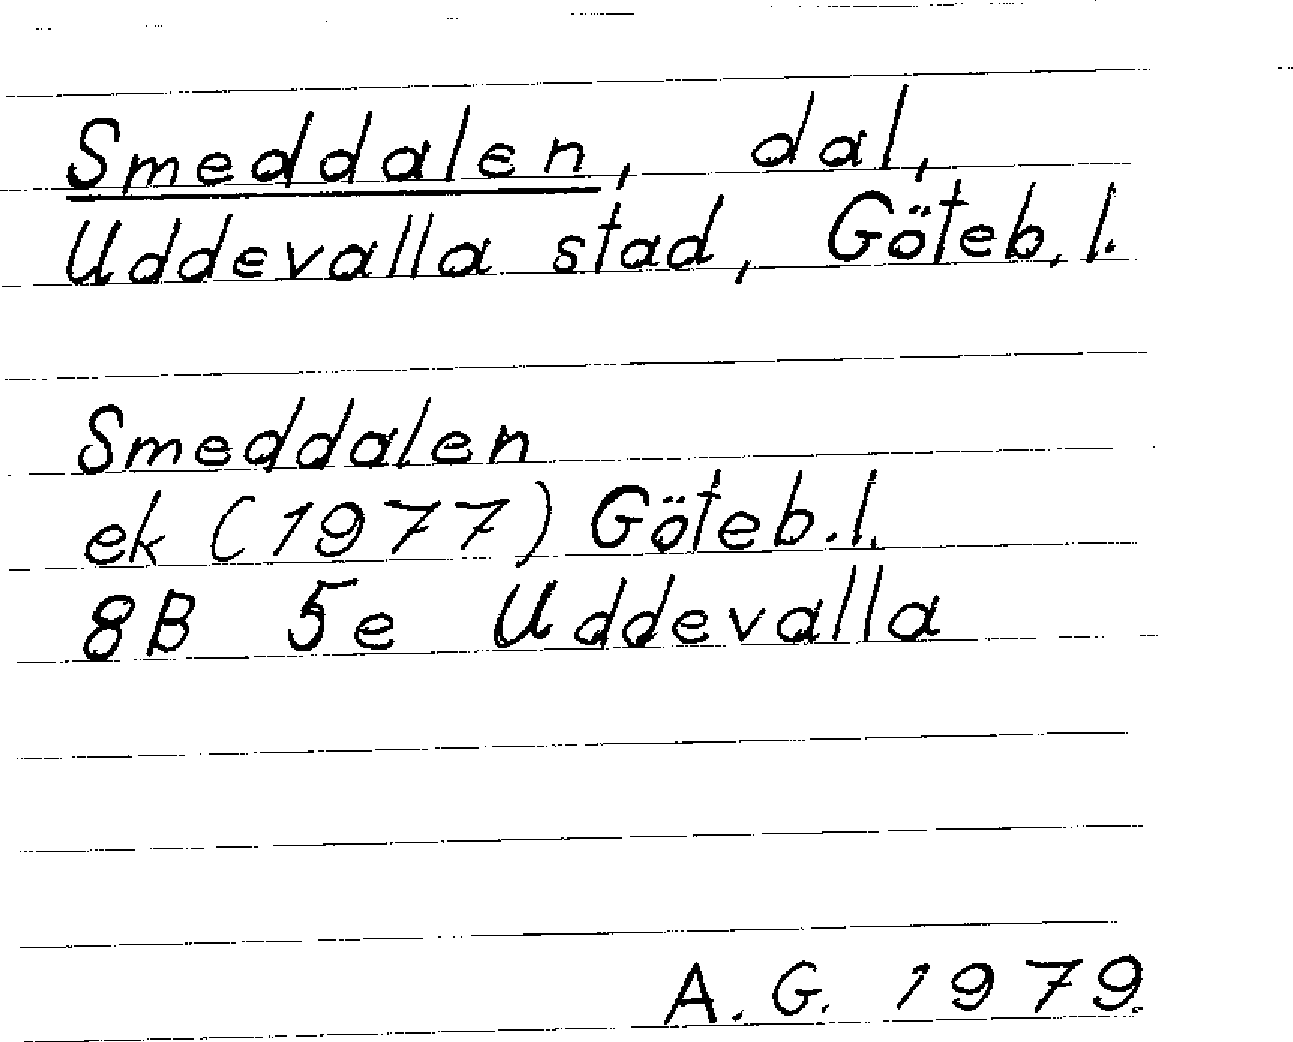 Smeddalen, dal,
Uddevalla stad, Göteb. l.
Smeddalen
ek (1977) Göteb. l.
8B 5e Uddevalla
A. G. 1979.